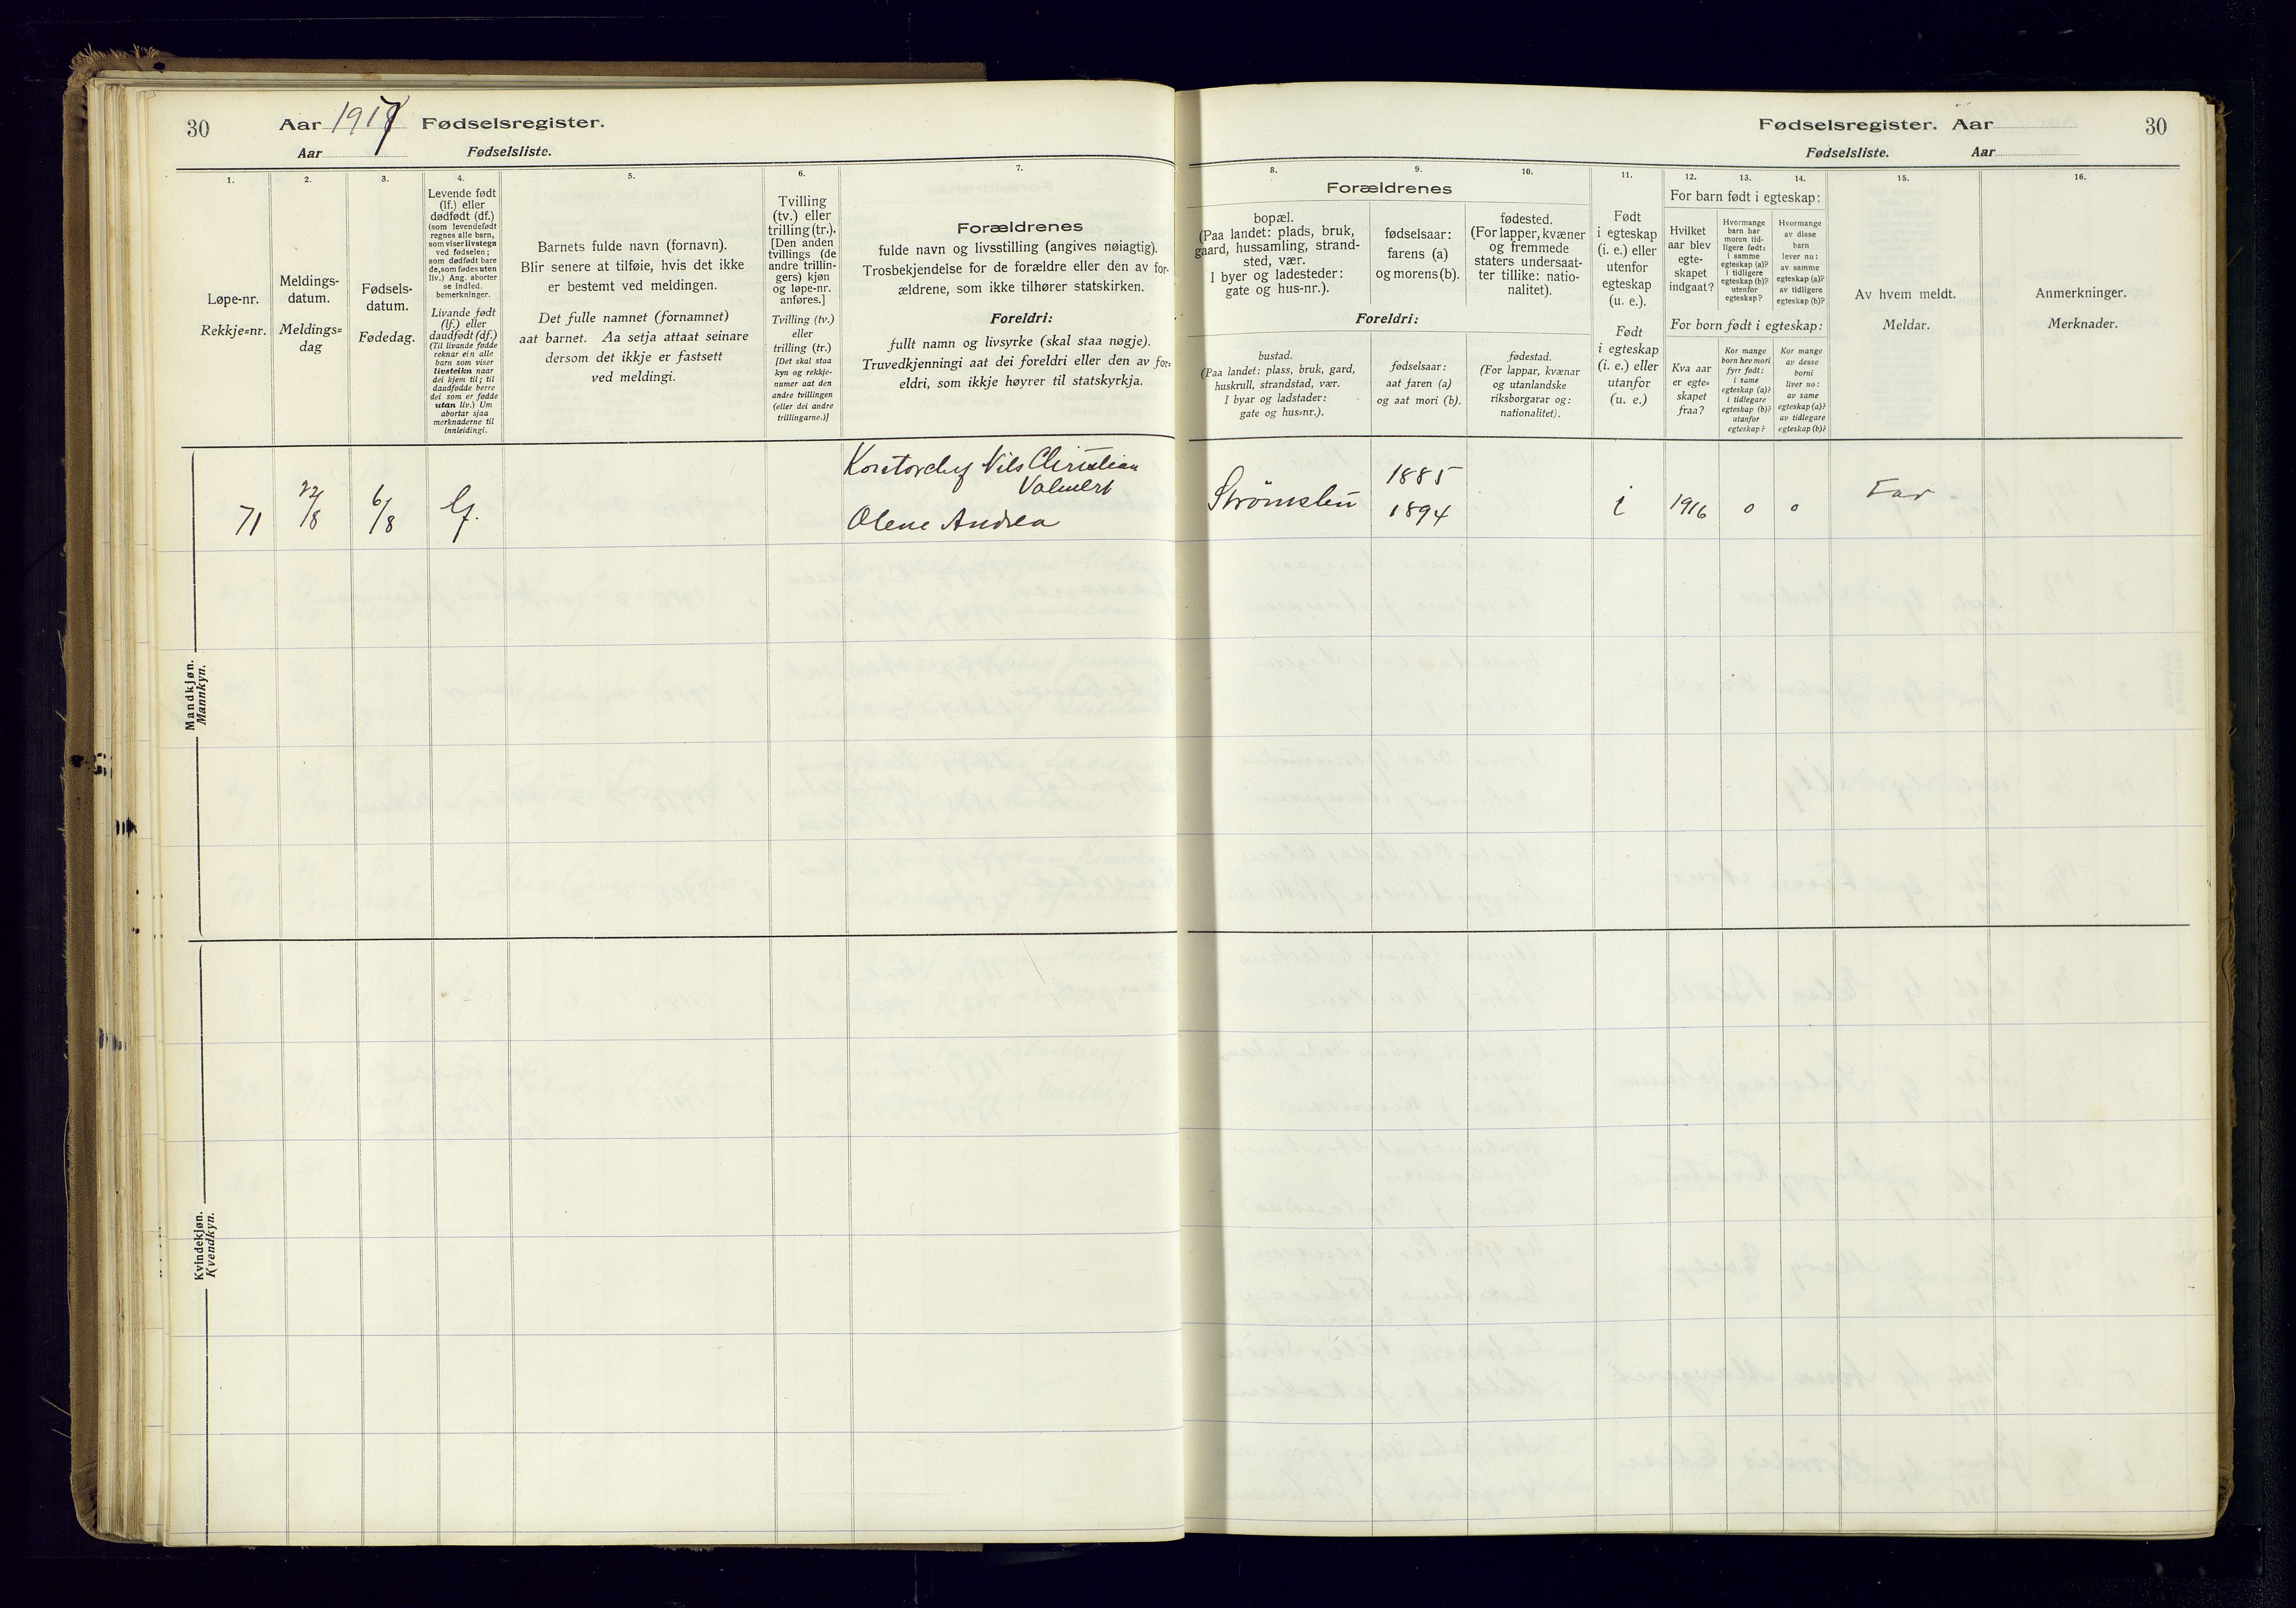 30 Aar 1917 Fødselsregister.
Aar Fødselsliste.
1.
Løpe-nr.
Rekkje=nr.
2.
Meldings-
datum.
Meldings=
dag
3.
Fødsels-
datum.
Fødedag.
4.
Levende født
(lf.) eller
dødfødt (df.)
(som levendefødt
regnes alle barn,
som viser livstegn
ved fødselen;
som dødfødt bare
de, som fødes uten
liv.) Ang. aborter
se indled.
bemerkninger.
Livande født
(lf.) eller
daudfødt (df.)
(Til livande fødde
reknar ein alle
barn som viser
livsteikn naar
dei kjem til; til
daudfødde berre
dei som er fødde
utan liv.) Um
abortar sjaa
merknaderne til
innleidingi.
5.
Barnets fulde navn (fornavn).
Blir senere at tilføie, hvis det ikke
er bestemt ved meldingen.
Det fulle namnet (fornamnet)
aat barnet. Aa setja attaat seinare
dersom det ikkje er fastsett
ved meldingi.
6.
Tvilling
(tv.) eller
trilling (tr.).
[Den anden
tvillings (de
andre trillin-
gers) kjøn
og løpe-nr.
anføres.]
Tvilling (tv.)
eller
trilling (tr.)
[Det skal staa
kyn og rekkje-
numer aat den
andre tvillingen
(eller dei andre
trillingarne.)]
7.
Forældrenes
fulde navn og livsstilling (angives nøiagtig).
Trosbekjendelse for de forældre eller den av for-
ældrene, som ikke tilhører statskirken.
Foreldri:
fullt namn og livsyrke (skal staa nøgje).
Truvedkjenningi aat dei foreldri eller den av for=
eldri, som ikkje høyrer til statskyrkja.
Mandkjøn.
Mannkyn.
71 22/8 6/8 lf. Nils Christian
Olene Andrea
Kvindekjøn.
Kvendkyn.
Fødselsregister. Aar 30
Fødselsliste. Aar
8. 9. 10.
Forældrenes
bopæl.
(Paa landet: plads, bruk,
gaard, hussamling, strand-
sted, vær.
I byer og ladesteder:
gate og hus-nr.).
fødselsaar:
farens (a)
og morens (b).
fødested.
(For lapper, kvæner
og fremmede
staters undersaat-
ter tillike: natio-
nalitet).
Foreldri:
bustad.
(Paa landet: plass, bruk, gard,
huskrull, strandstad, vær.
I byar og ladstader:
gate og hus=nr.).
fødselsaar:
aat faren (a)
og aat mori (b).
fødestad.
(For lappar, kvænar
og utanlandske
riksborgarar og:
nationalitet).
11.
Født
i egteskap
(i. e.) eller
utenfor
egteskap
(u. e.).
Født
i egteskap
(i. e.) eller
utanfor
(u. e.)
12. 13. 14.
For barn født i egteskap:
Hvilket
aar blev
egte-
skapet
indgaat?
Hvormange
barn har
moren tid-
ligere født:
i samme
egteskap (a)?
i tidligere
egteskap (b)?
utenfor
egteskap?
Hvormange
av disse
barn
lever nu:
av samme
egteskap (a)?
av tidligere
egteskap (b)?
For born født i egteskap:
Kva aar
er egte=
skapet
fraa?
Kor mange
born hev mori
fyrr født:
i same
egteskap (a)?
i tidlegare
egteskap (b)?
utanfor
egteskap?
Kor mange
av desse
borni
liver no:
av same
egteskap (a)?
av tidlegare
egteskap (b)?
15.
Av hvem meldt.
Meldar.
16.
Anmerkninger.
Merknader.
1885
1894 i 1916 0 0 Far